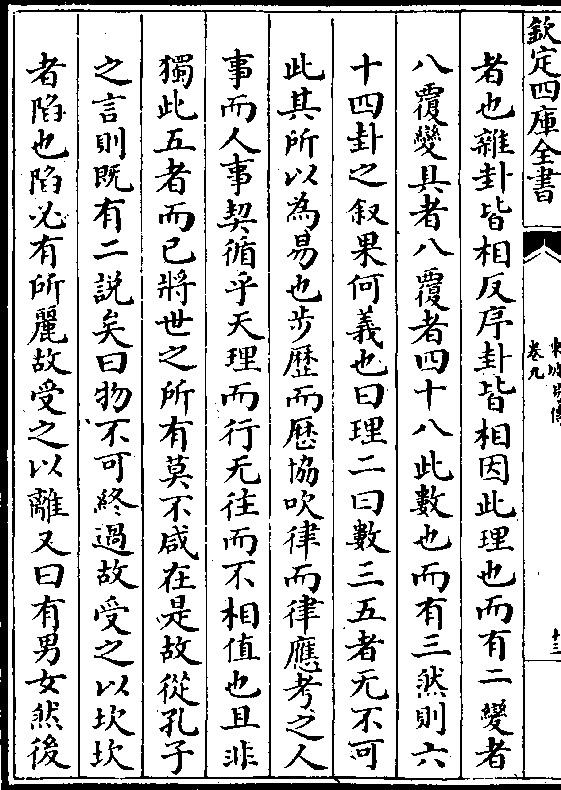 欽定四庫全書
東坡易傳
卷九
十三
者也雜卦皆相反序卦皆相因此理也而有二變者
八覆變具者八覆者四十八此數也而有三然則六
十四卦之叙果何義也曰理二曰數三五者无不可
此其所以為易也步歴而厯協吹律而律應考之人
事而人事契循乎天理而行无往而不相值也且非
獨此五者而已將世之所有莫不咸在是故從孔子
之言則既有二説矣曰物不可終過故受之以坎坎
者陷也陷必有所麗故受之以離又曰有男女然後